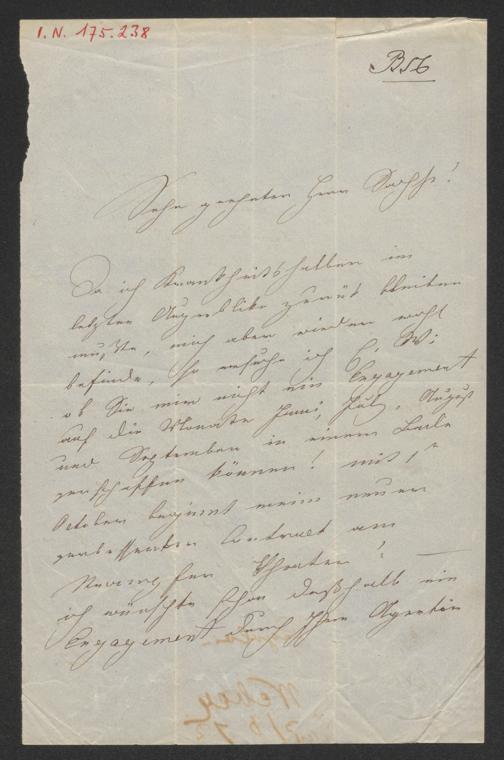 I. N. 175.238
B56
Sehr geehrter Herr Sachse!
Da ich Krankheitshalber im
letzten Augenblike zurük bleiben
mußte, mich aber wieder wohl
befinde, so ersuche ich E. W:
ob Sie mir nicht ein Engagement
auf die Monate Juni, Juli, August
und September in einem Bade
verschaffen können! mit 1t
October beginnt mein neuer
verbesserter Contract am
Theater!
ich wünschte schon deßhalb ein
Engagement durch Ihre Agentie